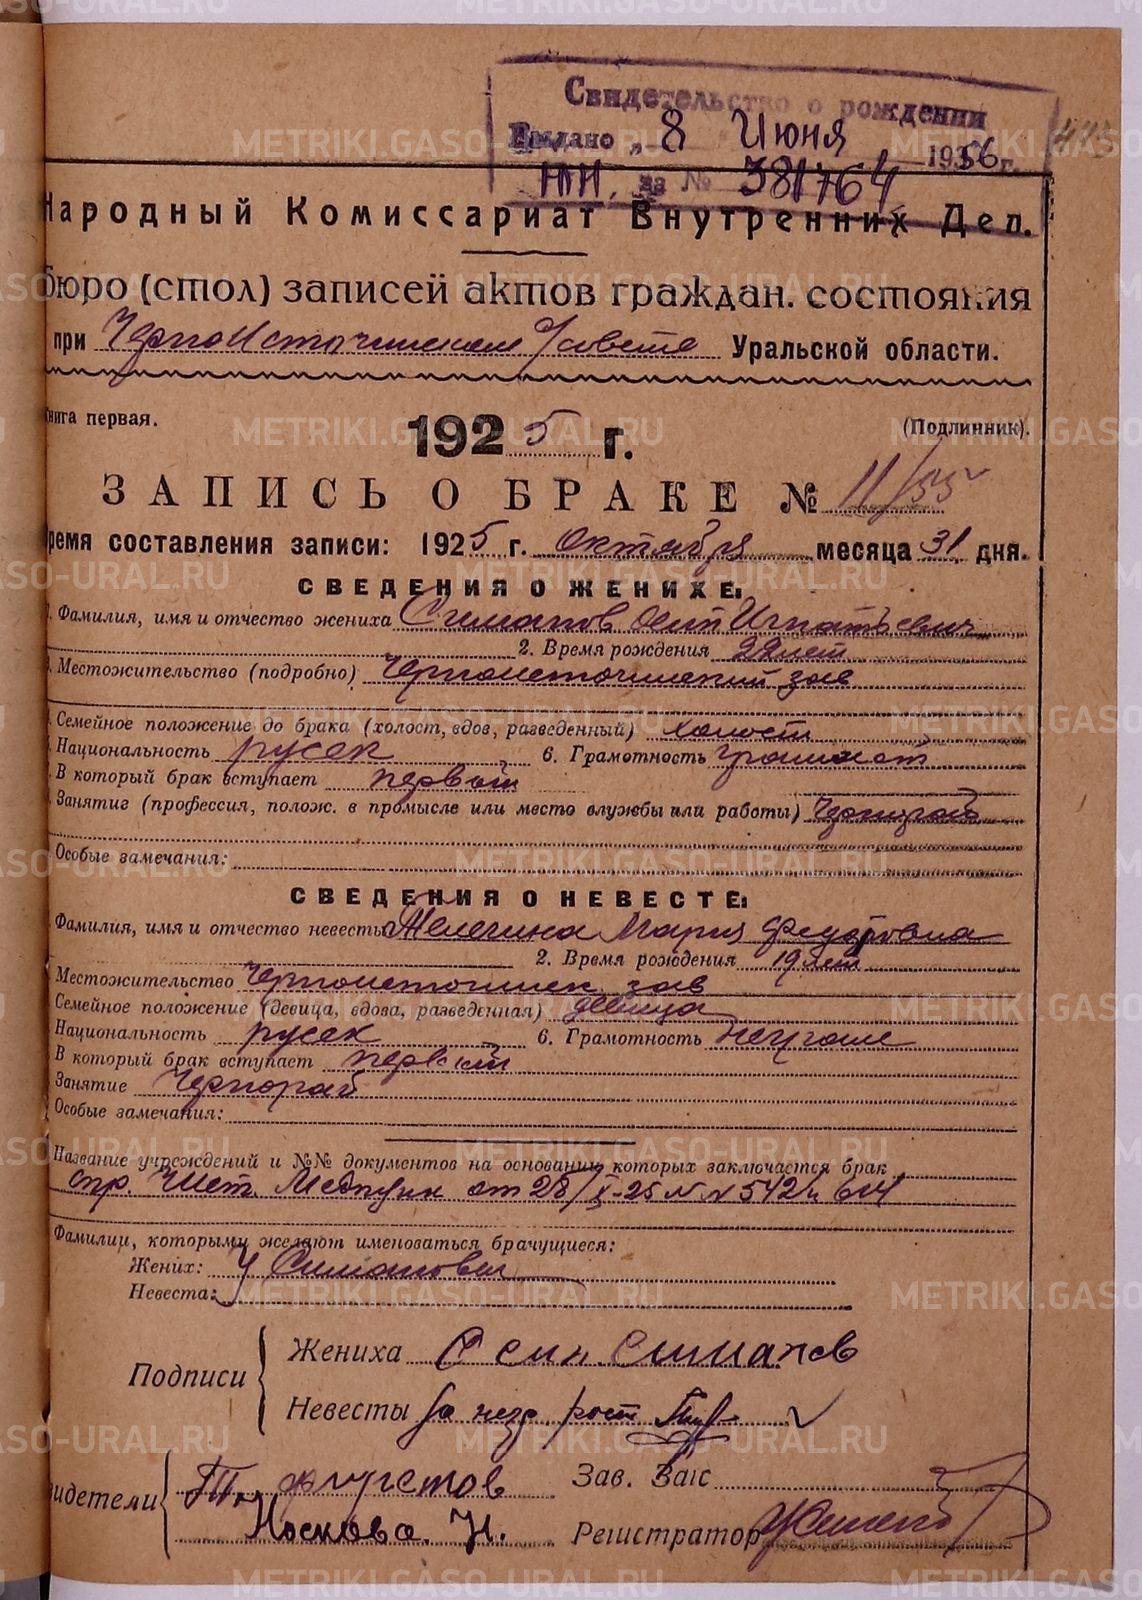 Свидетельство о рождении
Выдано „ 8 Июня 1956 г.
НП. за № 381764
Народный Комиссариат Внутренних Дел.
Бюро (стол) записей актов граждан. состояния
при Черноисточинском с/совете Уральской области.
Книга первая.
(Подлинник).
1925 г.
ЗАПИСЬ О БРАКЕ № 11/55
Время составления записи: 1925 г. октября месяца 31 дня.
СВЕДЕНИЯ О ЖЕНИХЕ:
1. Фамилия, имя и отчество жениха Симанов Осип Игнатьевич
2. Время рождения 22 лет
Местожительство (подробно) Черноисточинский зав
Семейное положение до брака (холост, вдов, разведенный) холост
Национальность русск 6. Грамотность грамот
В который брак вступает первый
Занятие (профессия, полож. в промысле или место влужбы или работы) Чернораб
Особые замечания:
СВЕДЕНИЯ О НЕВЕСТЕ:
Фамилия, имя и отчество невесты Мария Федоровна
2. Время рождения 19 лет
Местожительство Черноисточинск зав
Семейное положение (девица, вдова, разведенная) девица
Национальность русск 6. Грамотность неграмо
В который брак вступает первый
Занятие Чернораб
Особые замечания:
Название учреждений и №№ документов на основании которых заключается брак
спр. Чист. Медпунк от 28/X-25 N N 542 и
Фамилии, которыми желают именоваться брачущиеся:
Жених: Симановы
Невеста:
Подписи
Жениха Осип Симанов
Невесты за негр рост
Свидетели
Зав. Загс
Носкова. Н.
Регистратор
METRIKI.GASO-URAL.RU